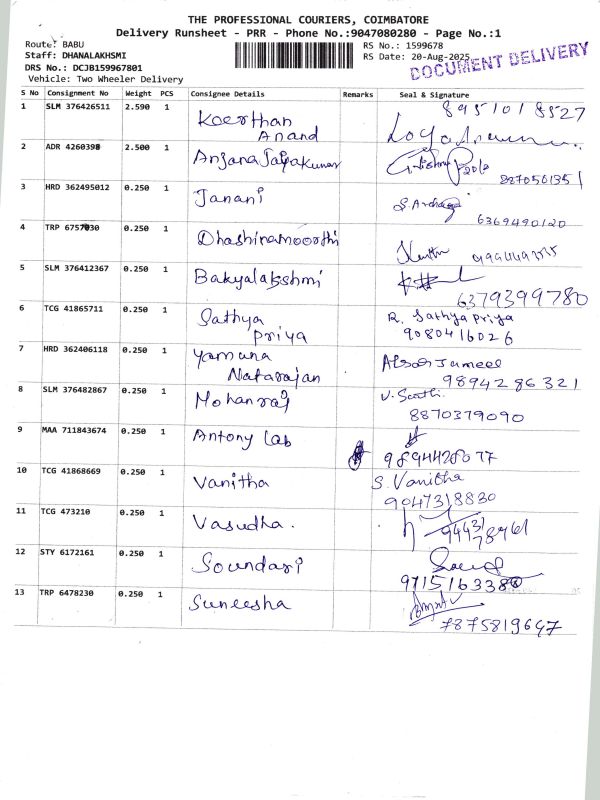 THE PROFESSIONAL COURIERS, COIMBATORE
Delivery Runsheet - PRR - Phone No.:9047080280 - Page No.:1
Route: BABU
Staff: DHANALAKHSMI
DRS No.: DCJB159967801
Vehicle: Two Wheeler Delivery
RS No.: 1599678
RS Date: 20-Aug-2025
DOCUMENT DELIVERY
S No Consignment No Weight PCS Consignee Details Remarks Seal & Signature
1 SLM 376426511 2.590 1 Keerthan Anand 8951018527
2 ADR 4260398 2.500 1 Anjana Jayakumar
3 HRD 362495012 0.250 1 Janani 6369490120
4 TRP 6757030 0.250 1 Dhashinamoorthi
5 SLM 376412367 0.250 1 Bakyalakshmi 6379399780
6 TCG 41865711 0.250 1 Sathya Priya R. Sathya Priya 9080416026
7 HRD 362406118 0.250 1 Yamuna Natarajan Jameel 9894286321
8 SLM 376482867 0.250 1 Mohanraj 8870379090
9 MAA 711843674 0.250 1 Antony Lab 9894428077
10 TCG 41868669 0.250 1 Vanitha S. Vanitha 9047318830
11 TCG 473210 0.250 1 Vasudha.
12 STY 6172161 0.250 1 Soundari
13 TRP 6478230 0.250 1 Suneesha 7875819647